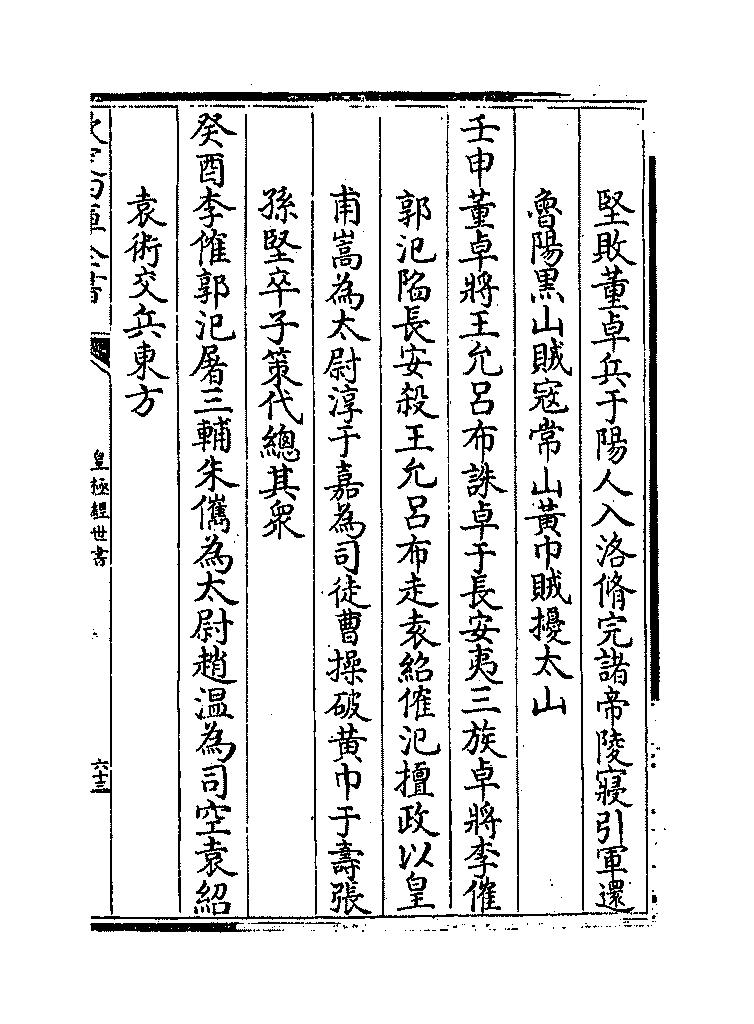 堅敗董卓兵于陽人入洛脩完諸帝陵寢引軍還
魯陽黒山賊寇常山黃巾賊擾太山
壬申董卓將王允呂布誅卓于長安夷三族卓將李傕
郭汜陷長安殺王允呂布走袁紹傕汜擅政以皇
甫嵩為太尉淳于嘉為司徒曹操破黄巾于壽張
孫堅卒子策代總其衆
癸酉李傕郭汜屠三輔朱儁為太尉趙温為司空袁紹
袁術交兵東方
皇極經世書
六十三